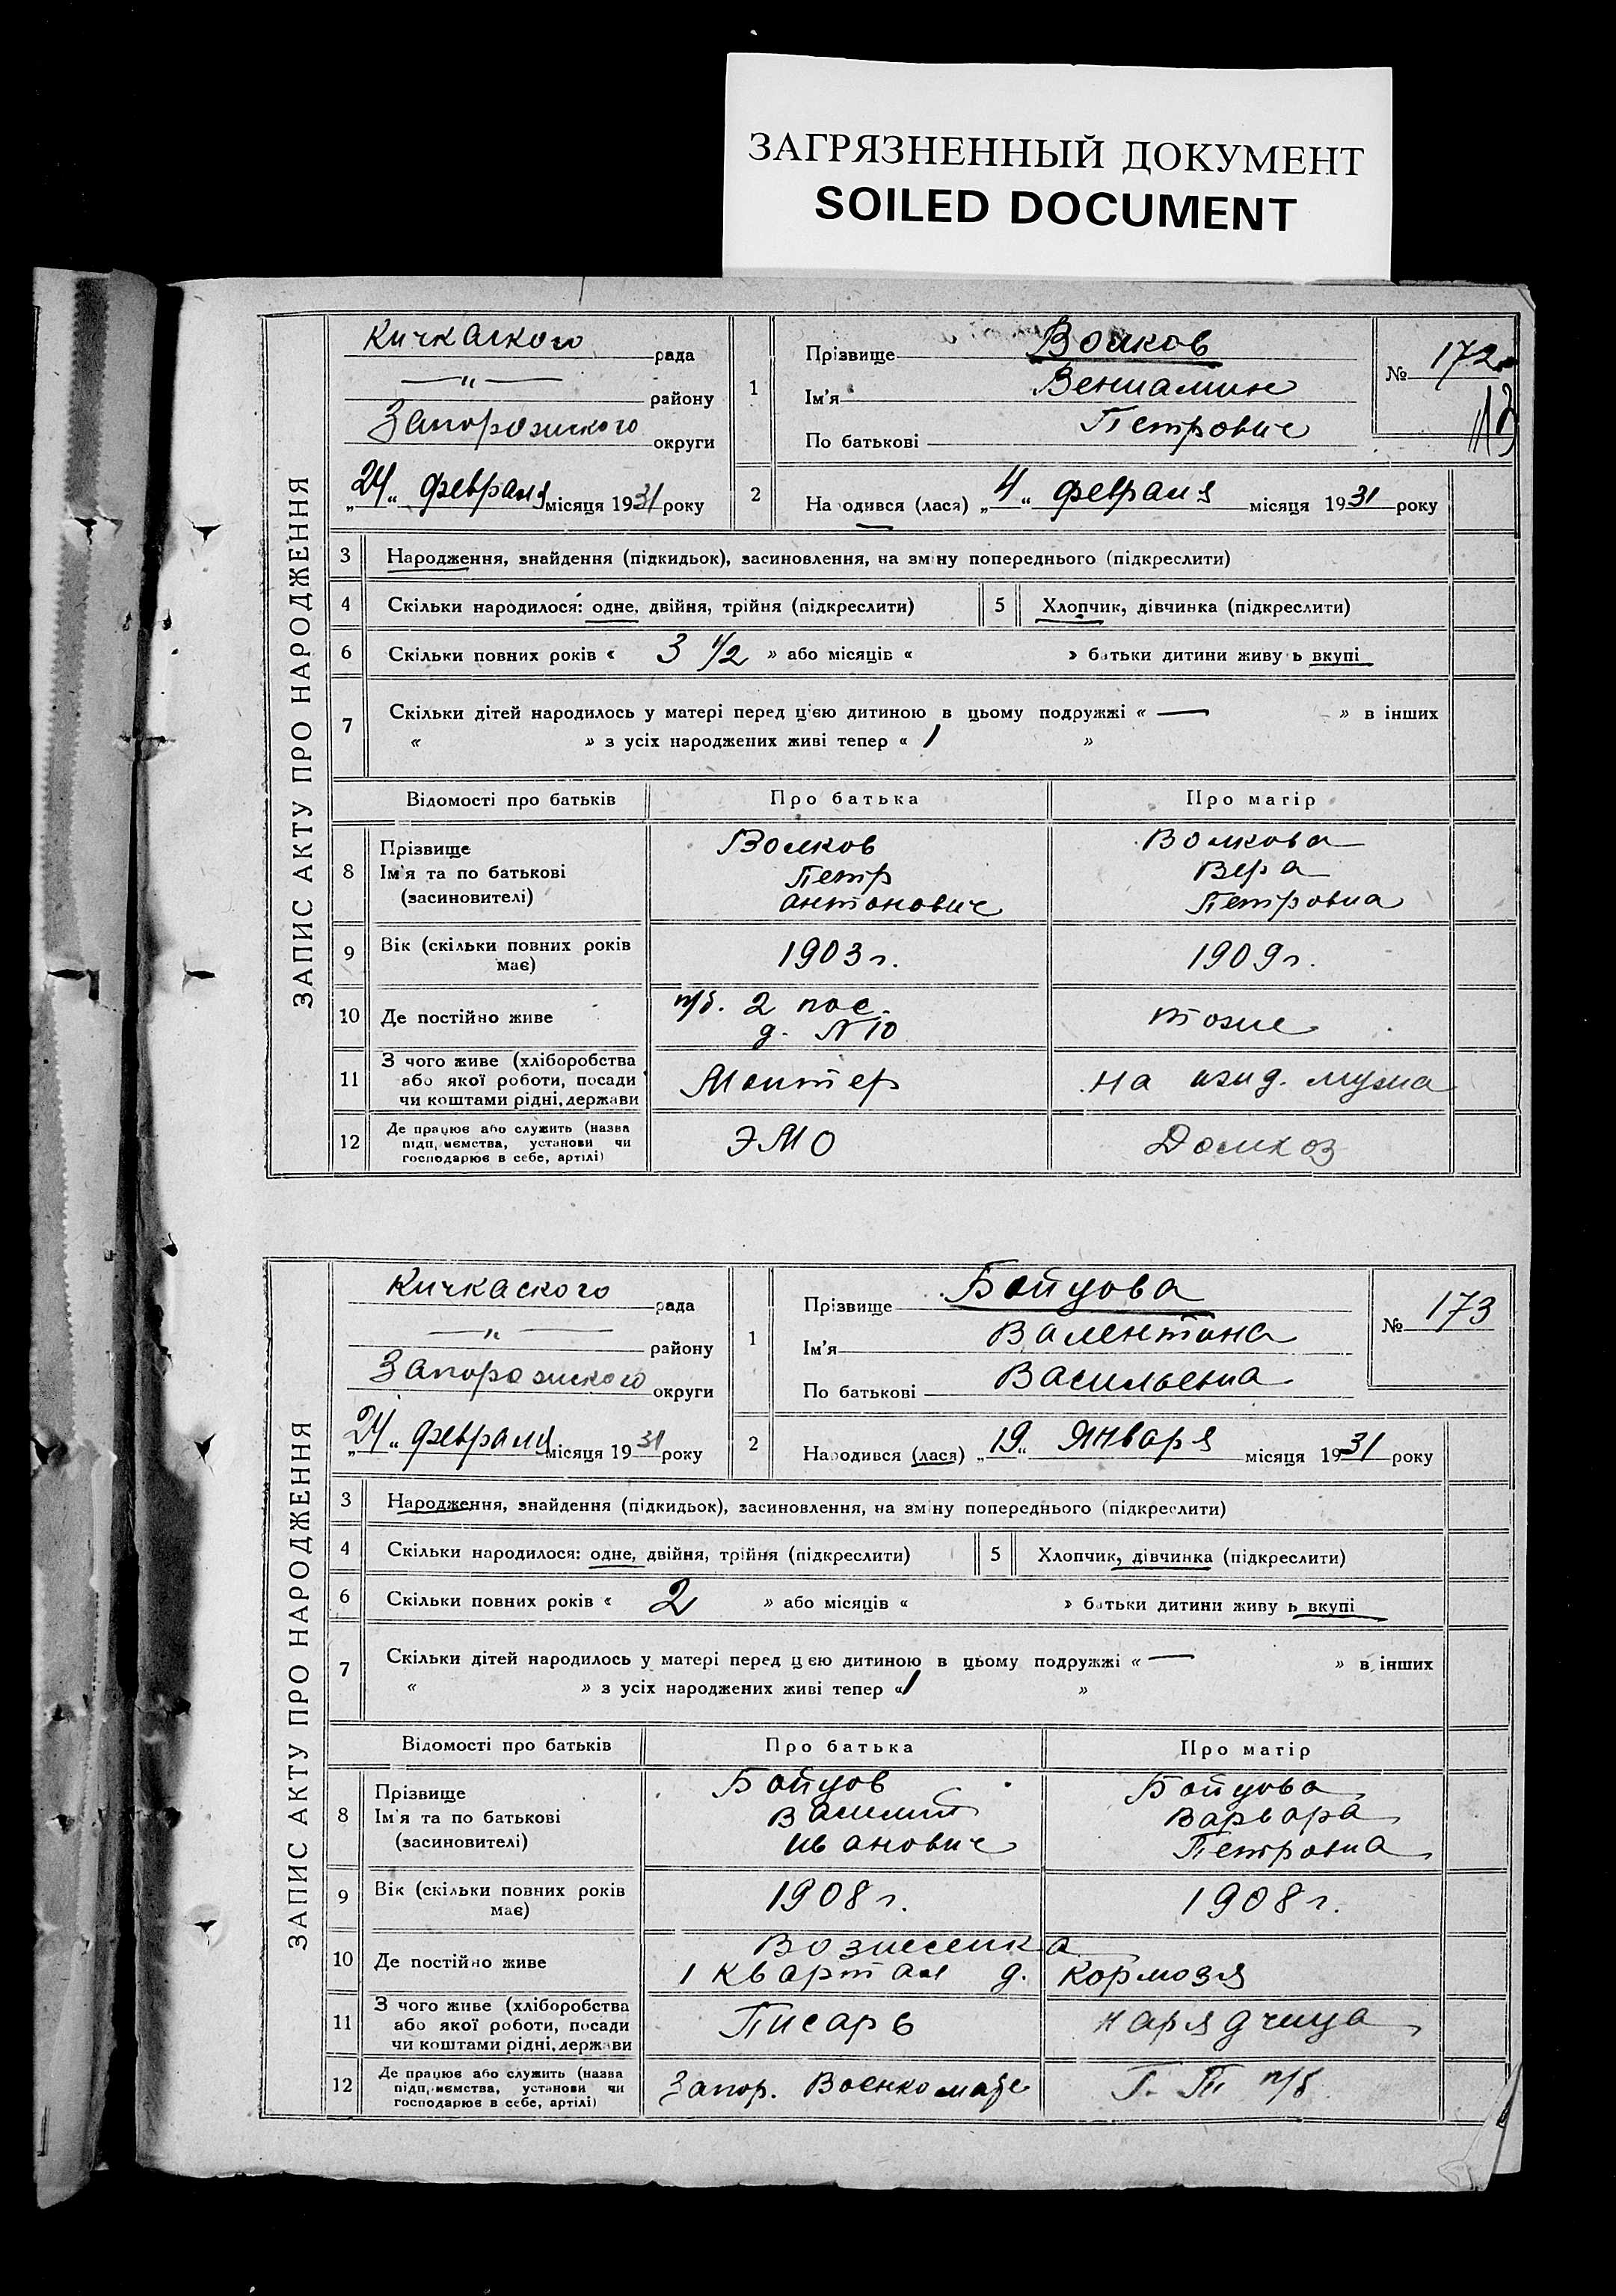 ЗАГРЯЗНЕННЫЙ ДОКУМЕНТ
SOILED DOCUMENT
ЗАПИС АКТУ ПРО НАРОДЖЕННЯ
Кичкаского рада
—„— району
Запорожского округи
„24„ февраля місяця 1931 року
1
Прізвище Волков
Ім'я Вениамин
По батькові Петрович
№ 172
2
Народився (лася) „4„ февраля місяця 1931 року
3 Народження, знайдення (підкидьок), засиновлення, на зміну попереднього (підкреслити)
4 Скільки народилося: одне, двійня, трійня (підкреслити) 5 Хлопчик, дівчинка (підкреслити)
6 Скільки повних років « 3 1/2 » або місяців « » батьки дитини живуть вкупі
7 Скільки дітей народилось у матері перед цією дитиною в цьому подружжі « — » в інших
« » з усіх народжених живі тепер « 1 »
Відомості про батьків Про батька Про матір
8 Прізвище Волков Волкова
Ім'я та по батькові Петр Вера
(засиновителі) Антонович Петровна
9 Вік (скільки повних років має) 1903 г. 1909 г.
10 Де постійно живе п/б. 2 пос. тоже
д. N 10
11 З чого живе (хліборобства
або якої роботи, посади Монтер на ижд. мужа
чи коштами рідні, держави
12 Де працює або служить (назва
підприємства, установи чи ЭМО Домхоз
господарює в себе, артілі)
ЗАПИС АКТУ ПРО НАРОДЖЕННЯ
Кичкаского рада
—„— району
Запорожского округи
„24„ февраля місяця 1931 року
1
Прізвище Бойцова
Ім'я Валентина
По батькові Васильевна
№ 173
2
Народився (лася) „19„ Января місяця 1931 року
3 Народження, знайдення (підкидьок), засиновлення, на зміну попереднього (підкреслити)
4 Скільки народилося: одне, двійня, трійня (підкреслити) 5 Хлопчик, дівчинка (підкреслити)
6 Скільки повних років « 2 » або місяців « » батьки дитини живуть вкупі
7 Скільки дітей народилось у матері перед цією дитиною в цьому подружжі « — » в інших
« » з усіх народжених живі тепер « 1 »
Відомості про батьків Про батька Про матір
8 Прізвище Бойцов Бойцова
Ім'я та по батькові Василий Варвара
(засиновителі) Иванович Петровна
9 Вік (скільки повних років має) 1908 г. 1908 г.
10 Де постійно живе Вознесенка
1 квартал д. Кормозя
11 З чого живе (хліборобства
або якої роботи, посади Писарь нарядчица
чи коштами рідні, держави
12 Де працює або служить (назва
підприємства, установи чи Запор. Военкомате Г. П. п/б
господарює в себе, артілі)